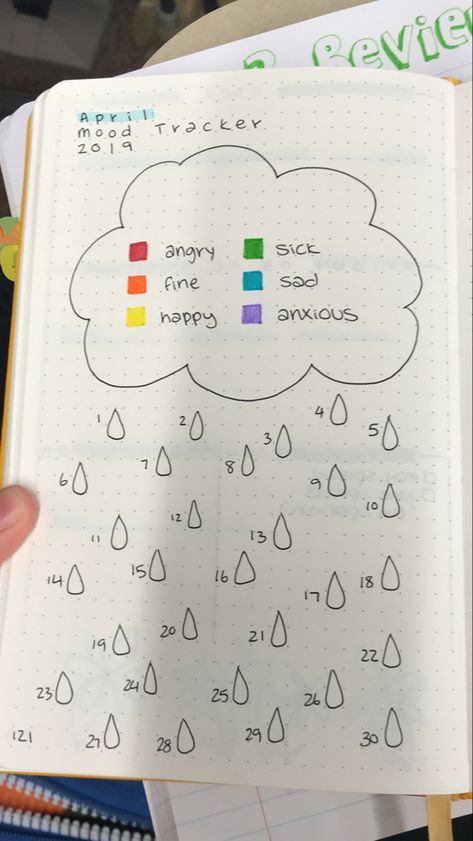 Review
April
mood Tracker
2019
angry sick
fine sad
happy anxious
1 2 3 4 5
6 7 8 9 10
11 12 13
14 15 16 17 18
19 20 21 22
23 24 25 26
121 27 28 29 30